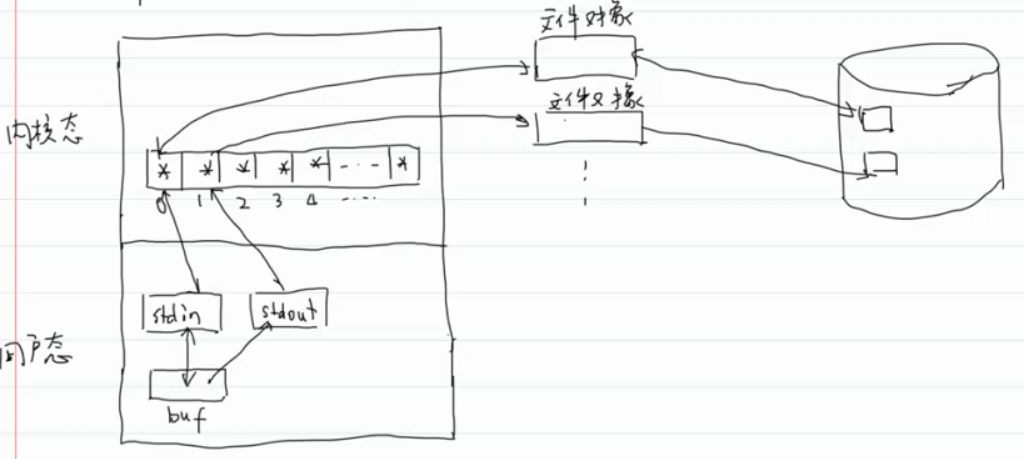 文件对象
文件对象
内核态
* * * * * ... *
0 1 2 3 4 ......
stdin stdout
用户态
buf